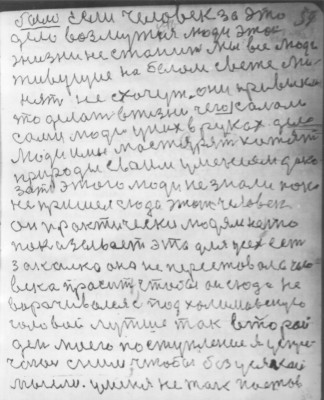 было если человек за это 59
дело возмутся люди этой
жизни не станит. мы все люди
живущие на белом свете
нять не схочут. они привыкли
то делать в жизни чего создали
сами люди у них в руках дело
люди имы мастерят хотят
природы своим умением
зато этого люди не знали пока
не пришел сюда этот человек
он практически людям
показывает это для всех есть
закалка она не перестовала чело
века просить чтобы он сюда не
ворачивался с под
головой лутше так второй
ден моего поступление я устре
чался с ним, чтобы без усякой
мысли. у меня не так